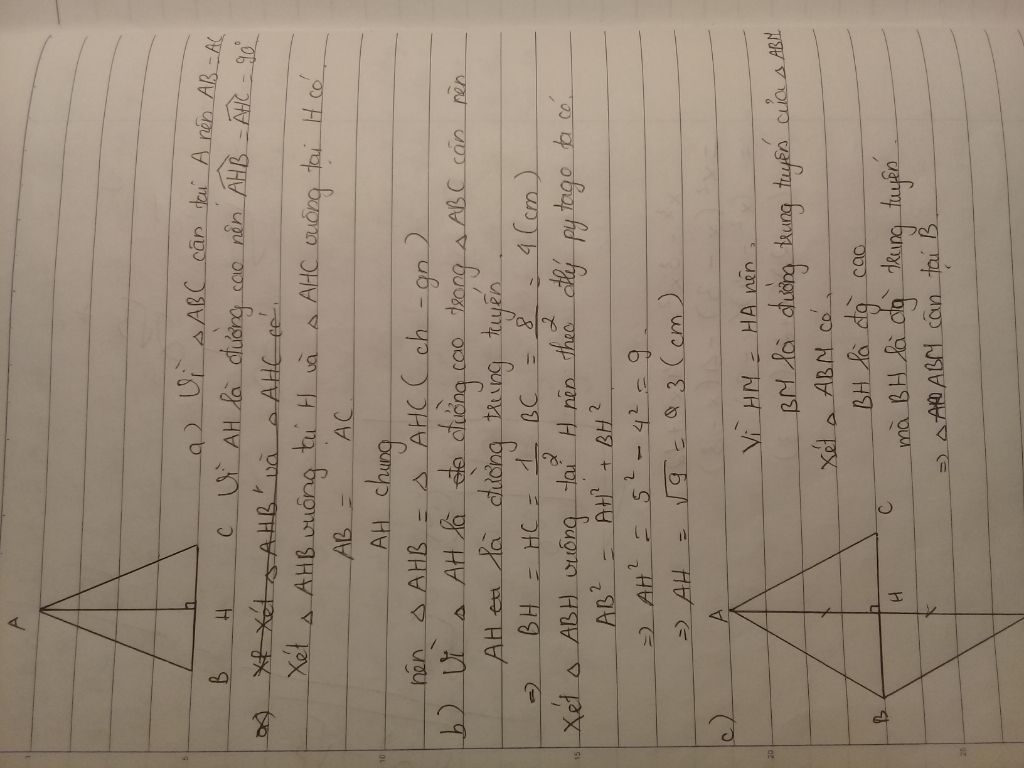 A
B H C
a) Vì △ABC cân tại A nên AB = AC
Vì AH là đường cao nên AHB = AHC = 90°
Xét △AHB và △AHC có:
Xét △AHB vuông tại H và △AHC vuông tại H có
AB = AC
AH chung
nên △AHB = △AHC (ch - gn)
b) Vì △ AH là đường cao trong △ABC cân nên
AH là đường trung tuyến.
⇒ BH = HC = 1/2 BC = 8/2 = 4 (cm)
Xét △ABH vuông tại H nên theo đlý pytago ta có.
AB² = AH² + BH²
⇒ AH² = 5² - 4² = 9
⇒ AH = √9 = 3 (cm)
c)
A
B
H
C
Vì HM = HA nên.
BM là đường trung tuyến của △ABM
Xét △ABM có.
BH là đg cao
mà BH là đg trung tuyến.
⇒ △ABM cân tại B